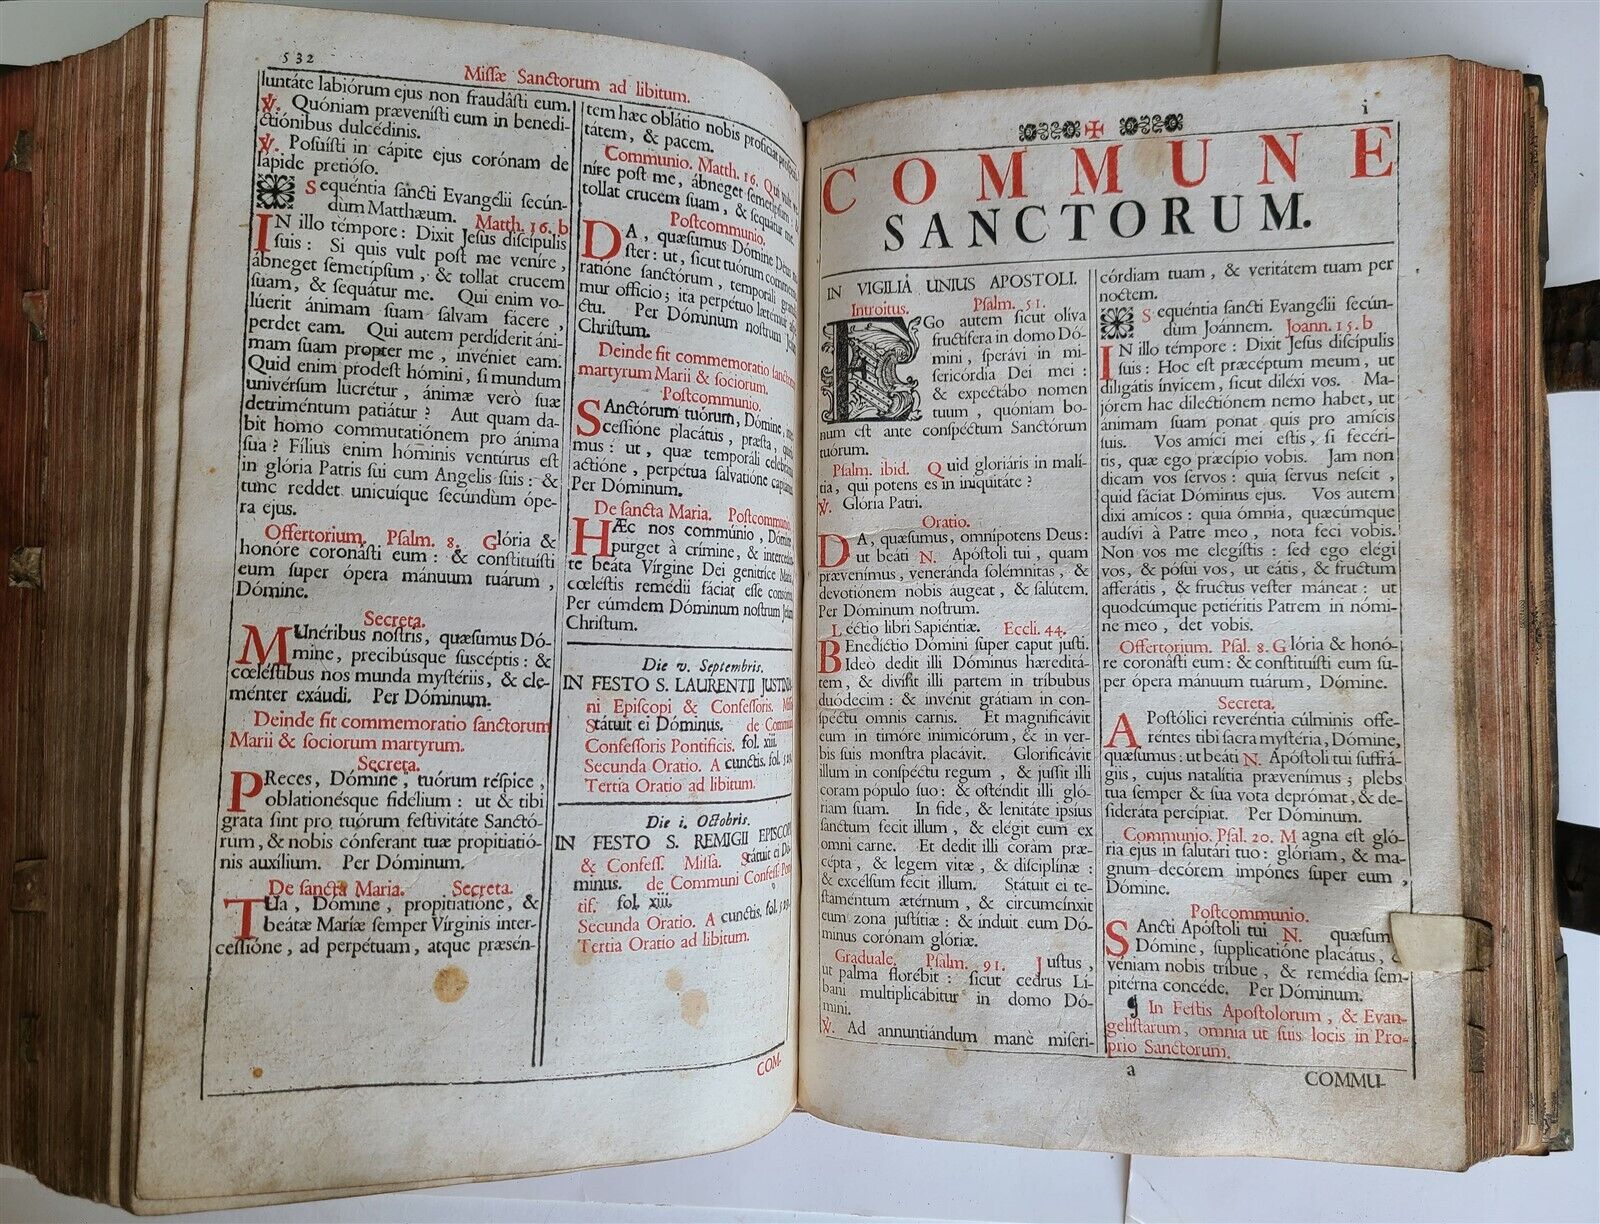 532
Missæ Sanctorum ad libitum.
luntáte labiórum ejus non fraudâsti eum.
℣. Quóniam prævenísti eum in benedi-
ctiónibus dulcédinis.
℣. Posuísti in cápite ejus corónam de
lápide pretióso.
Sequéntia sancti Evangélii secún-
dùm Matthæum. Matth. 16. b
IN illo témpore: Dixit Jesus discípulis
suis: Si quis vult post me veníre,
ábneget semetípsum, & tollat crucem
suam, & sequátur me. Qui enim vo-
lúerit ánimam suam salvam fácere,
perdet eam. Qui autem perdíderit áni-
mam suam propter me, invéniet eam.
Quid enim prodest hómini, si mundum
univérsum lucrétur, ánimæ verò suæ
detriméntum patiátur? Aut quam da-
bit homo commutatiónem pro ánima
sua? Fílius enim hóminis ventúrus est
in glória Patris sui cum Angelis suis: &
tunc reddet unicuíque secúndùm ópe-
ra ejus.
Offertorium. Psalm. 8. Glória &
honóre coronásti eum: & constituísti
eum super ópera mánuum tuárum,
Dómine.
Secreta.
MUnéribus nostris, quæsumus Dó-
mine, precibúsque suscéptis: &
cœléstibus nos munda mystériis, & cle-
ménter exáudi. Per Dóminum.
Deinde fit commemoratio sanctorum
Marii & sociorum martyrum.
Secreta.
PReces, Dómine, tuórum réspice,
oblationésque fidélium: ut & tibi
grata sint pro tuórum festivitáte Sanctó-
rum, & nobis cónferant tuæ propitiatió-
nis auxílium. Per Dóminum.
De sancta Maria. Secreta.
TUa, Dómine, propitiatióne, &
beátæ Maríæ semper Vírginis inter-
cessióne, ad perpétuam, atque præsén-
tem hæc oblátio nobis profíciat
tátem, & pacem.
Communio. Matth. 16. Qui vult
níre post me, ábneget semetípsum
tollat crucem suam, & sequátur me.
Postcommunio.
DA, quæsumus Dómine Deus
ster: ut, sicut tuórum
ratióne sanctórum, temporáli
mur officio; ita perpétuo lætémur
ctu. Per Dóminum nostrum
Christum.
Deinde fit commemoratio
martyrum Marii & sociorum.
Postcommunio.
SAnctórum tuórum, Dómine,
cessióne placátus, præsta,
mus: ut, quæ temporáli
actióne, perpétua salvatióne
Per Dóminum.
De sancta Maria. Postcommunio.
HÆc nos commúnio, Dómine,
purget à crímine, &
te beáta Vírgine Dei genitríce
cœléstis remédii fáciat esse
Per eúmdem Dóminum nostrum
Christum.
Die v. Septembris.
IN FESTO S. LAURENTII JUSTINIA-
ni Episcopi & Confessoris.
Státuit ei Dóminus. de
Confessoris Pontificis. fol. xiii.
Secunda Oratio. A cunctis. fol.
Tertia Oratio ad libitum.
Die i. Octobris.
IN FESTO S. REMIGII EPISCOPI
& Confess. Missa. Státuit ei Dó-
minus. de Communi Confess.
tif. fol. xiii.
Secunda Oratio. A cunctis. fol.
Tertia Oratio ad libitum.
COM-
i
COMMUNE
SANCTORUM.
IN VIGILIÂ UNIUS APOSTOLI.
Introitus. Psalm. 51.
EGo autem sicut olíva
fructífera in domo Dó-
mini, sperávi in mi-
sericórdia Dei mei:
& expectábo nomen
tuum, quóniam bo-
num est ante conspéctum Sanctórum
tuórum.
Psalm. ibid. Quid gloriáris in malí-
tia, qui potens es in iniquitáte?
℣. Glória Patri.
Oratio.
DA, quæsumus, omnípotens Deus:
ut beáti N. Apóstoli tui, quam
prævenímus, veneránda solémnitas, &
devotiónem nobis áugeat, & salútem.
Per Dóminum nostrum.
Léctio libri Sapiéntiæ. Eccli. 44.
BEnedíctio Dómini super caput justi.
Ideò dedit illi Dóminus hæreditá-
tem, & divísit illi partem in tríbubus
duódecim: & invénit grátiam in con-
spéctu omnis carnis. Et magnificávit
eum in timóre inimicórum, & in ver-
bis suis monstra placávit. Glorificávit
illum in conspéctu regum, & jussit illi
coram pópulo suo: & osténdit illi gló-
riam suam. In fide, & lenitáte ipsíus
sanctum fecit illum, & elégit eum ex
omni carne. Et dedit illi coram præ-
cépta, & legem vitæ, & disciplínæ:
& excélsum fecit illum. Státuit ei te-
staméntum ætérnum, & circumcínxit
eum zona justítiæ: & índuit eum Dó-
minus corónam glóriæ.
Graduale. Psalm. 91. Justus,
ut palma florébit: sicut cedrus Lí-
bani multiplicábitur in domo Dó-
mini.
℣. Ad annuntiándum manè miseri-
córdiam tuam, & veritátem tuam per
noctem.
Sequéntia sancti Evangélii secún-
dum Joánnem. Joann. 15. b
IN illo témpore: Dixit Jesus discípulis
suis: Hoc est præcéptum meum, ut
diligátis ínvicem, sicut diléxi vos. Ma-
jórem hac dilectiónem nemo habet, ut
ánimam suam ponat quis pro amícis
suis. Vos amíci mei estis, si fecéri-
tis, quæ ego præcípio vobis. Jam non
dicam vos servos: quia servus nescit,
quid fáciat Dóminus ejus. Vos autem
dixi amícos: quia ómnia, quæcúmque
audívi à Patre meo, nota feci vobis.
Non vos me elegístis: sed ego elégi
vos, & pósui vos, ut eátis, & fructum
afferátis, & fructus vester máneat: ut
quodcúmque petiéritis Patrem in nómi-
ne meo, det vobis.
Offertorium. Psal. 8. Glória & honó-
re coronásti eum: & constituísti eum su-
per ópera mánuum tuárum, Dómine.
Secreta.
APostólici reveréntia cúlminis offe-
réntes tibi sacra mystéria, Dómine,
quæsumus: ut beáti N. Apóstoli tui suffrá-
giis, cujus natalítia prævenímus; plebs
tua semper & sua vota deprómat, & de-
sideráta percípiat. Per Dóminum.
Communio. Psal. 20. Magna est gló-
ria ejus in salutári tuo: glóriam, & ma-
gnum decórem impónes super eum,
Dómine.
Postcommunio.
SAncti Apóstoli tui N. quæsum
Dómine, supplicatióne placátus, &
véniam nobis tríbue, & remédia sem-
pitérna concéde. Per Dóminum.
¶ In Festis Apostolorum, & Evan-
gelistarum, omnia ut suis locis in Pro-
prio Sanctorum.
a
COMMU-